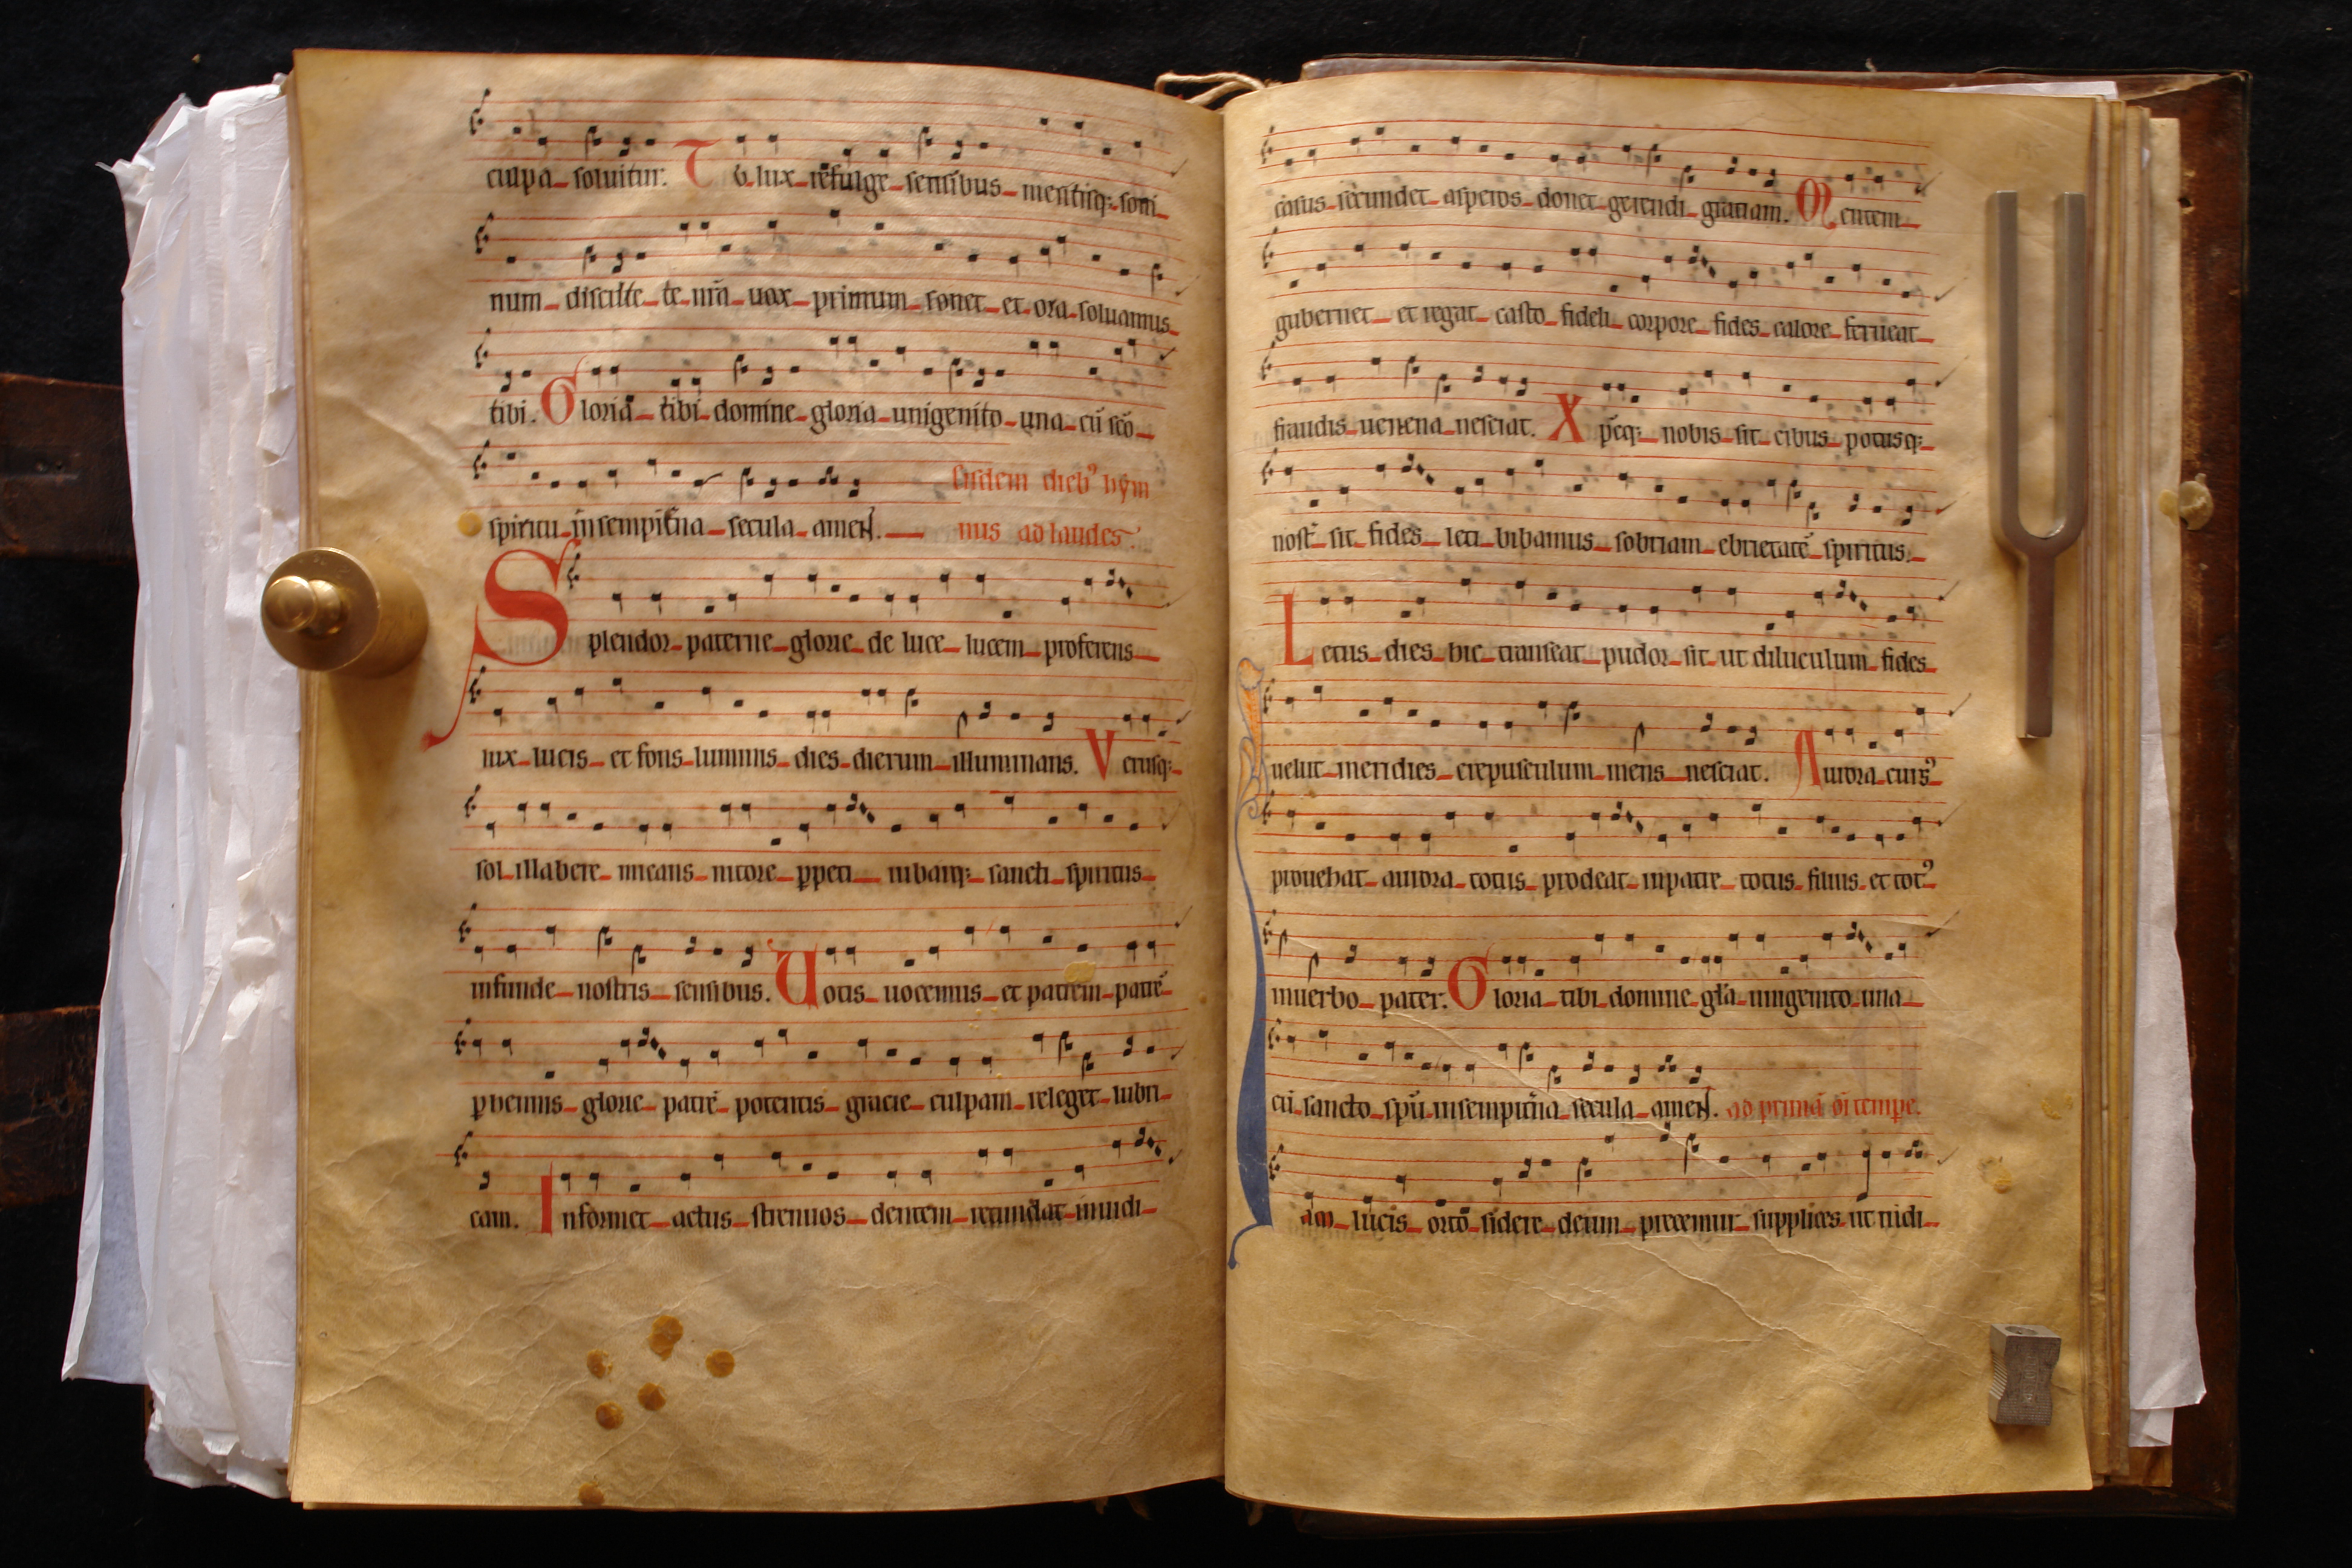 culpa soluitur. Tu lux refulge sensibus mentisq; som
num discute te nr̄a uox primum sonet et ora soluamus
tibi. Gloria tibi domine gloria unigenito una cū sc̄o
Eisdem dieb⁹ hym
spiritu in sempit̄na secula amen.
nus ad laudes.
Splendor paterne glorie de luce lucem proferens
lux lucis et fons luminis dies dierum illuminans. Verusq;
sol illabere micans nitore ꝑpeti iubarq; sancti spiritus
infunde nostris sensibus. Uotis uocemus et patrem patrē
ꝑhennis glorie patrē potentis gracie culpam releget lubri
cam. Informet actus strenuos dentem retundat inuidi
casus secundet asperos donet gerendi gratiam. Mentem
gubernet et regat casto fideli corpore fides calore ferueat
fraudis uenena nesciat. Xp̄cq; nobis sit cibus potusq;
nost̄ sit fides leti bibamus sobriam ebrietatē spiritus.
Letus dies hic transeat pudor sit ut diluculum fides
uelut meridies crepusculum mens nesciat. Aurora curs⁹
prouehat aurora totus prodeat inpatre totus filius et tot⁹
inuerbo pater. Gloria tibi domine gl̄a unigenito una
cū sancto sp̄u insempit̄na secula amen. ad primā oī tempe.
Iam lucis orto sidere deum precemur supplices ut in di